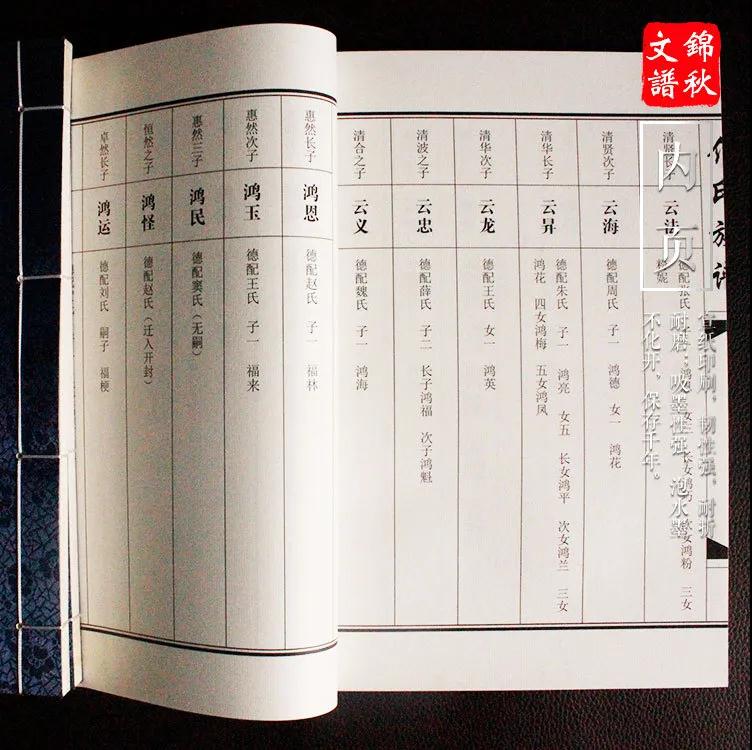 錦秋
文譜
内页
宣纸印刷，韧性强，耐折
耐磨；吸墨性强，泡水墨
不化开，保存千年。
清贤长子
云法
清贤次子
云海
德配周氏 子一 鸿德 女一 鸿花
清华长子
云昇
德配朱氏 子一 鸿亮 女五 长女鸿平 次女鸿兰 三女
鸿花 四女鸿梅 五女鸿凤
清华次子
云龙
德配王氏 女一 鸿英
清波之子
云忠
德配薛氏 子二 长子鸿福 次子鸿魁
清合之子
云义
德配魏氏 子一 鸿海
惠然长子
鸿恩
德配赵氏 子一 福林
惠然次子
鸿玉
德配王氏 子一 福来
惠然三子
鸿民
德配窦氏（无嗣）
恒然之子
鸿怪
德配赵氏（迁入开封）
卓然长子
鸿运
德配刘氏 嗣子 福梗